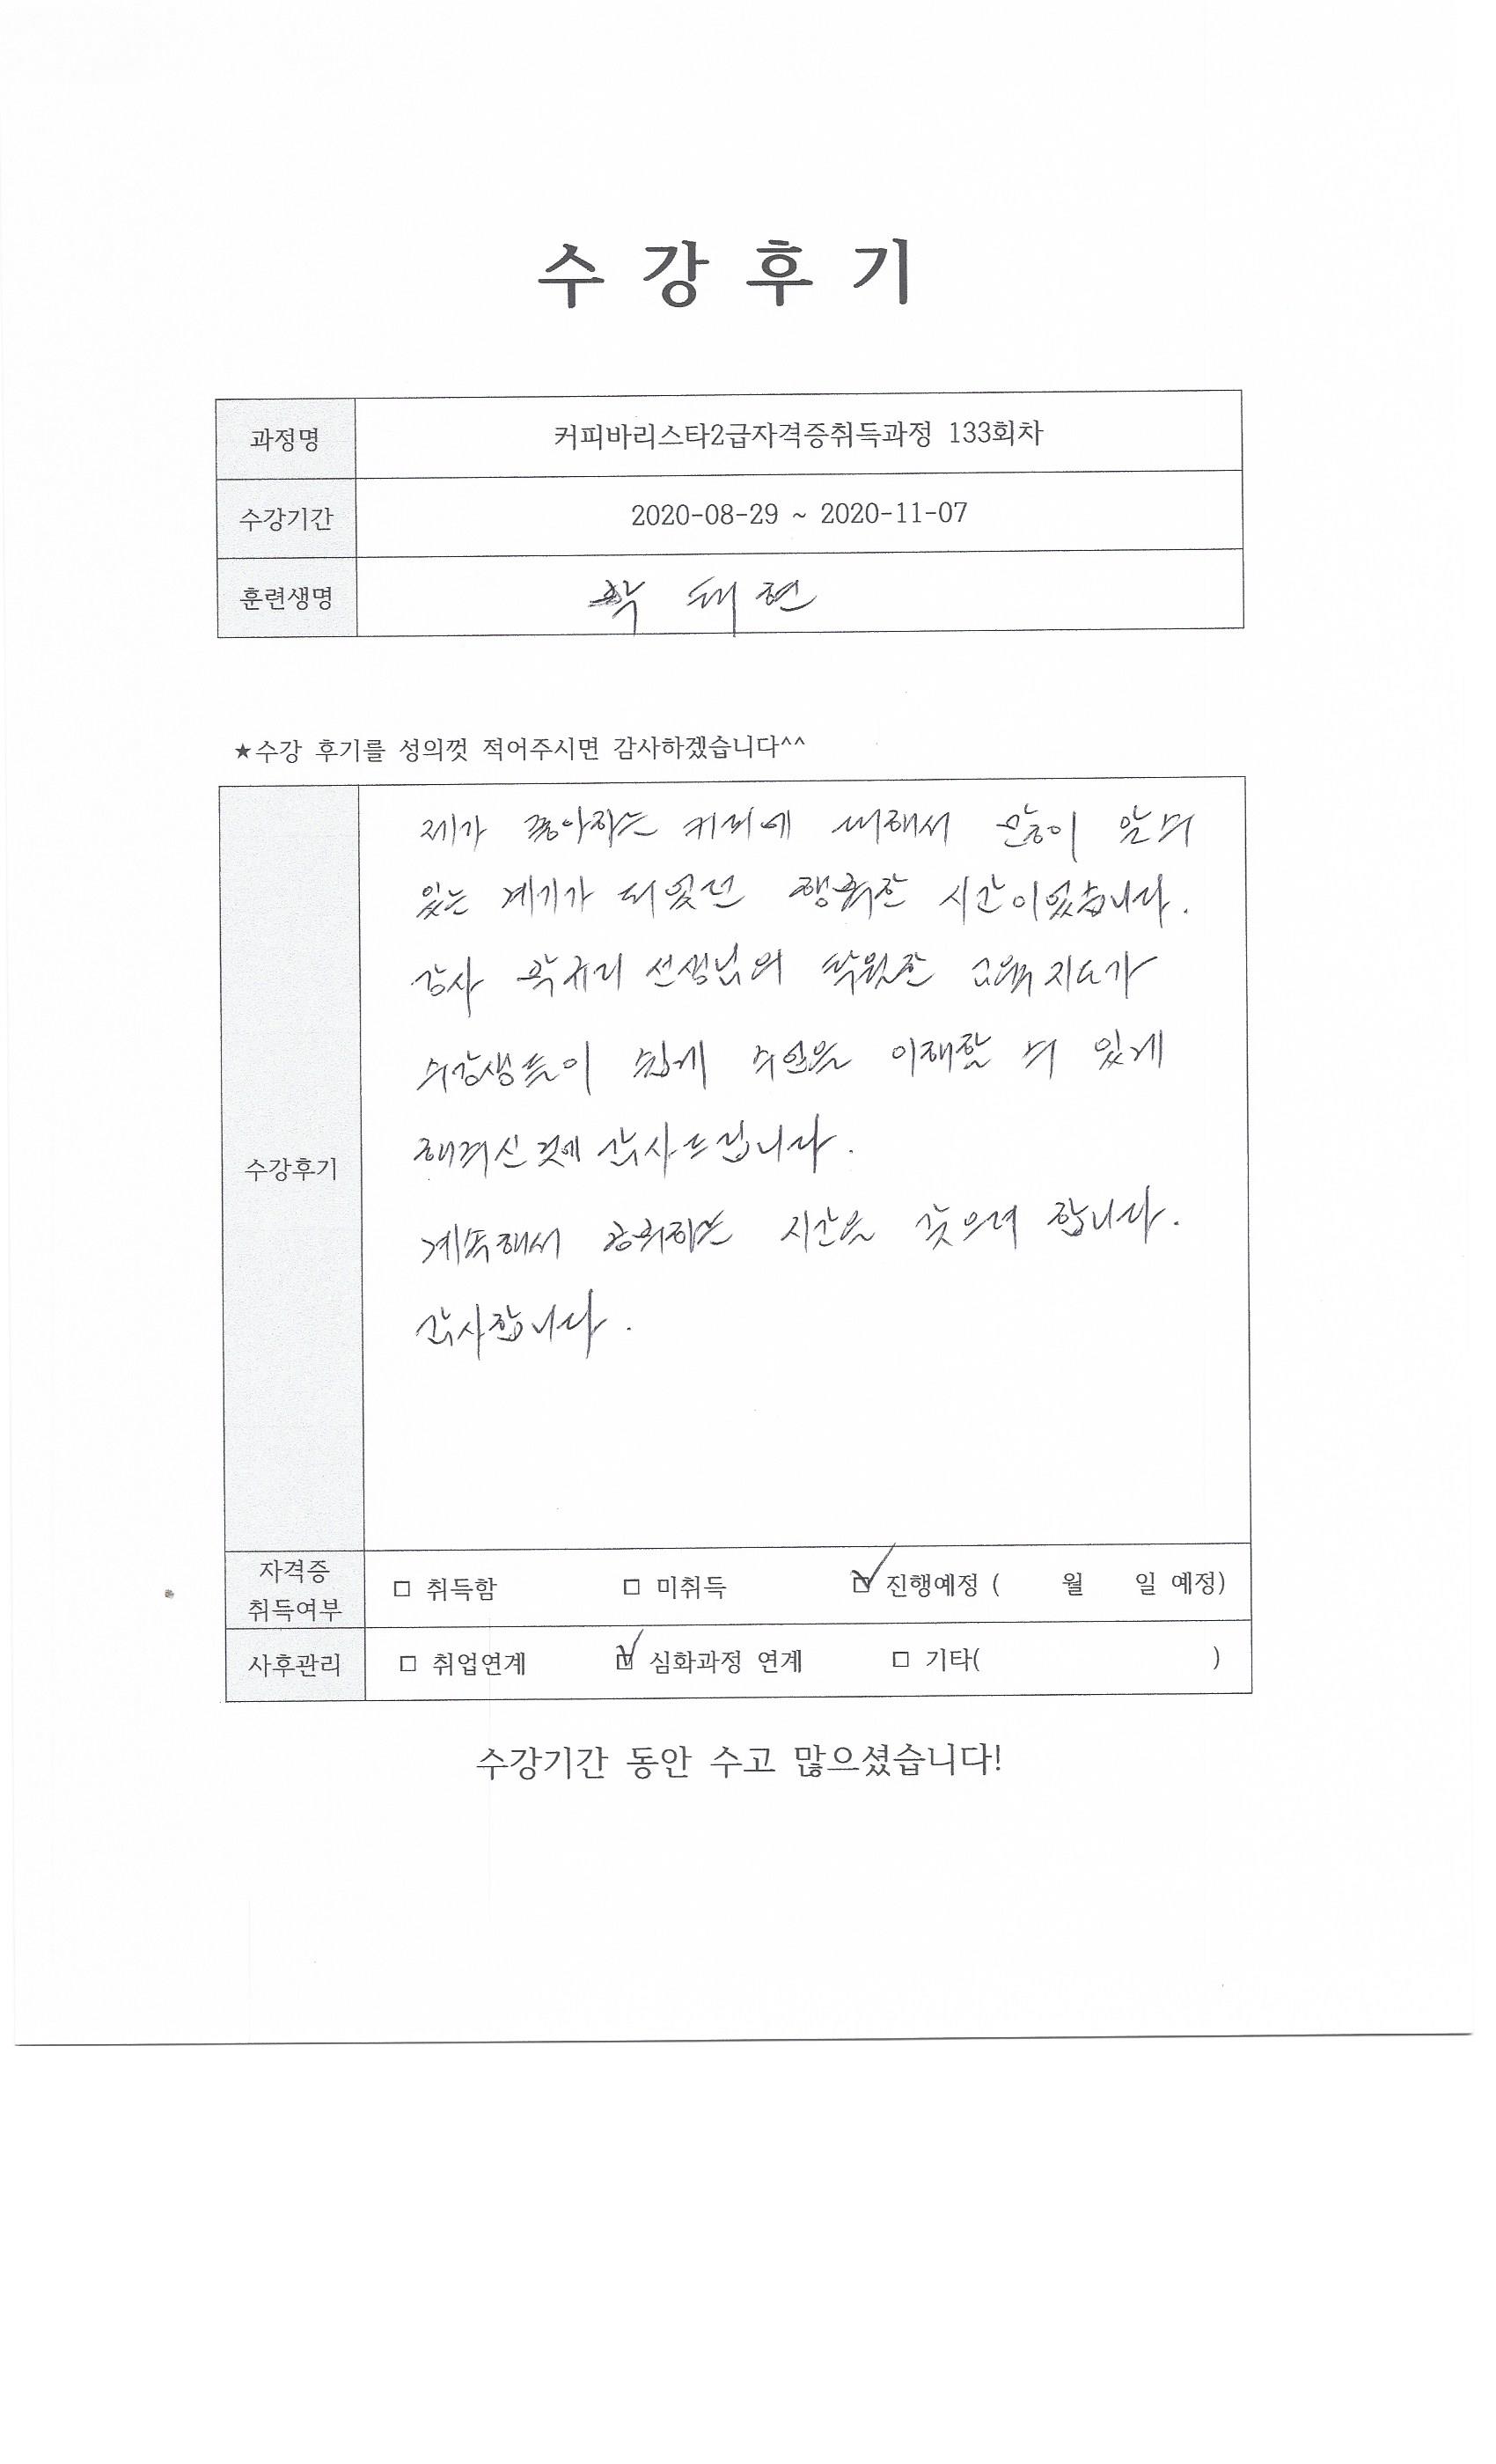 수 강 후 기
과정명 커피바리스타2급자격증취득과정 133회차
수강기간 2020-08-29 ~ 2020-11-07
훈련생명 태현
★수강 후기를 성의껏 적어주시면 감사하겠습니다^^
수강후기
제가 좋아하는 커피에 대해서 많이 알 수
있는 계기가 되었던 행복한 시간이었습니다.
강사 선생님의 탁월한 교육지도가
수강생들이 쉽게 수업을 이해할 수 있게
해주신 것에 감사드립니다.
계속해서 공부하는 시간을 갖으려 합니다.
감사합니다.
자격증 취득여부 □ 취득함 □ 미취득 ☑ 진행예정 ( 월 일 예정)
사후관리 □ 취업연계 ☑ 심화과정 연계 □ 기타( )
수강기간 동안 수고 많으셨습니다!